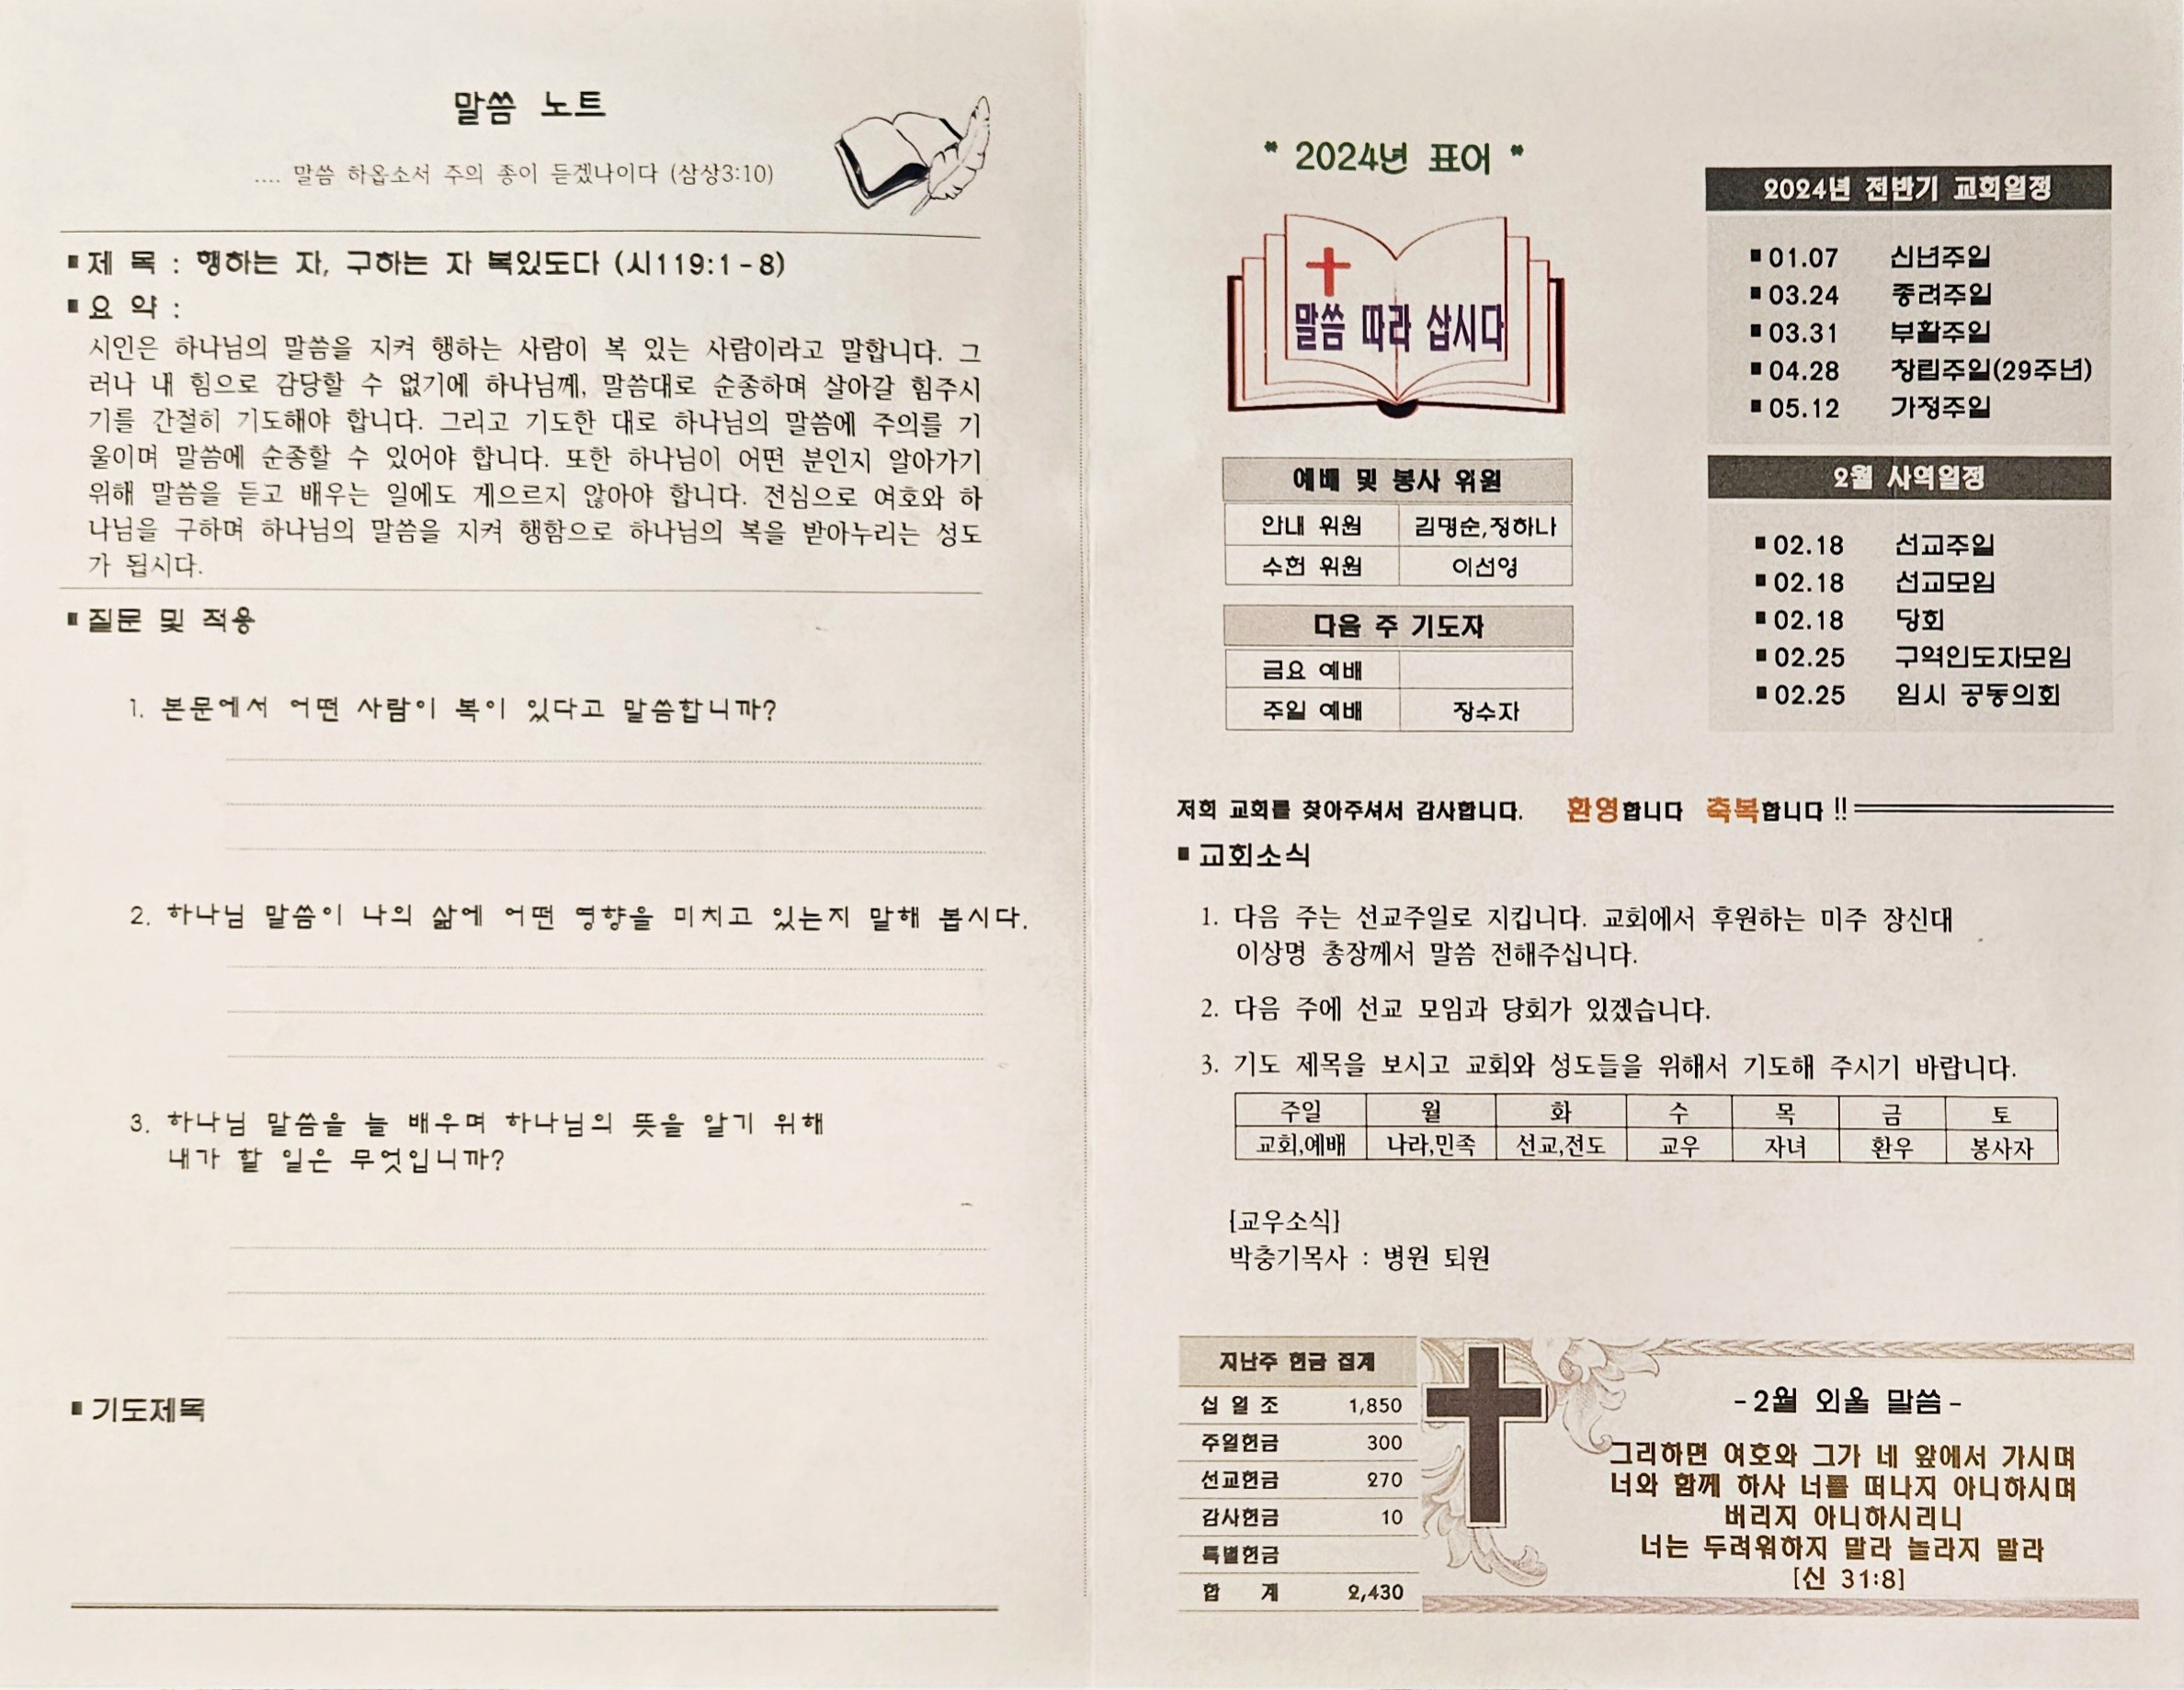 말씀 노트
.... 말씀 하옵소서 주의 종이 듣겠나이다 (삼상3:10)
■ 제 목 : 행하는 자, 구하는 자 복있도다 (시119:1-8)
■ 요 약 :
시인은 하나님의 말씀을 지켜 행하는 사람이 복 있는 사람이라고 말합니다. 그
러나 내 힘으로 감당할 수 없기에 하나님께, 말씀대로 순종하며 살아갈 힘주시
기를 간절히 기도해야 합니다. 그리고 기도한 대로 하나님의 말씀에 주의를 기
울이며 말씀에 순종할 수 있어야 합니다. 또한 하나님이 어떤 분인지 알아가기
위해 말씀을 듣고 배우는 일에도 게으르지 않아야 합니다. 전심으로 여호와 하
나님을 구하며 하나님의 말씀을 지켜 행함으로 하나님의 복을 받아누리는 성도
가 됩시다.
■ 질문 및 적용
1. 본문에서 어떤 사람이 복이 있다고 말씀합니까?
2. 하나님 말씀이 나의 삶에 어떤 영향을 미치고 있는지 말해 봅시다.
3. 하나님 말씀을 늘 배우며 하나님의 뜻을 알기 위해
내가 할 일은 무엇입니까?
■ 기도제목
* 2024년 표어 *
말씀 따라 삽시다
예배 및 봉사 위원
안내 위원 김명순,정하나
수헌 위원 이선영
다음 주 기도자
금요 예배
주일 예배 장수자
2024년 전반기 교회일정
■ 01.07 신년주일
■ 03.24 종려주일
■ 03.31 부활주일
■ 04.28 창립주일(29주년)
■ 05.12 가정주일
2월 사역일정
■ 02.18 선교주일
■ 02.18 선교모임
■ 02.18 당회
■ 02.25 구역인도자모임
■ 02.25 임시 공동의회
저희 교회를 찾아주셔서 감사합니다. 환영합니다 축복합니다 !!
■ 교회소식
1. 다음 주는 선교주일로 지킵니다. 교회에서 후원하는 미주 장신대
이상명 총장께서 말씀 전해주십니다.
2. 다음 주에 선교 모임과 당회가 있겠습니다.
3. 기도 제목을 보시고 교회와 성도들을 위해서 기도해 주시기 바랍니다.
주일 월 화 수 목 금 토
교회,예배 나라,민족 선교,전도 교우 자녀 환우 봉사자
[교우소식]
박충기목사 : 병원 퇴원
지난주 헌금 집계
십 일 조 1,850
주일헌금 300
선교헌금 270
감사헌금 10
특별헌금
합 계 2,430
-2월 외울 말씀-
그리하면 여호와 그가 네 앞에서 가시며
너와 함께 하사 너를 떠나지 아니하시며
버리지 아니하시리니
너는 두려워하지 말라 놀라지 말라
[신 31:8]